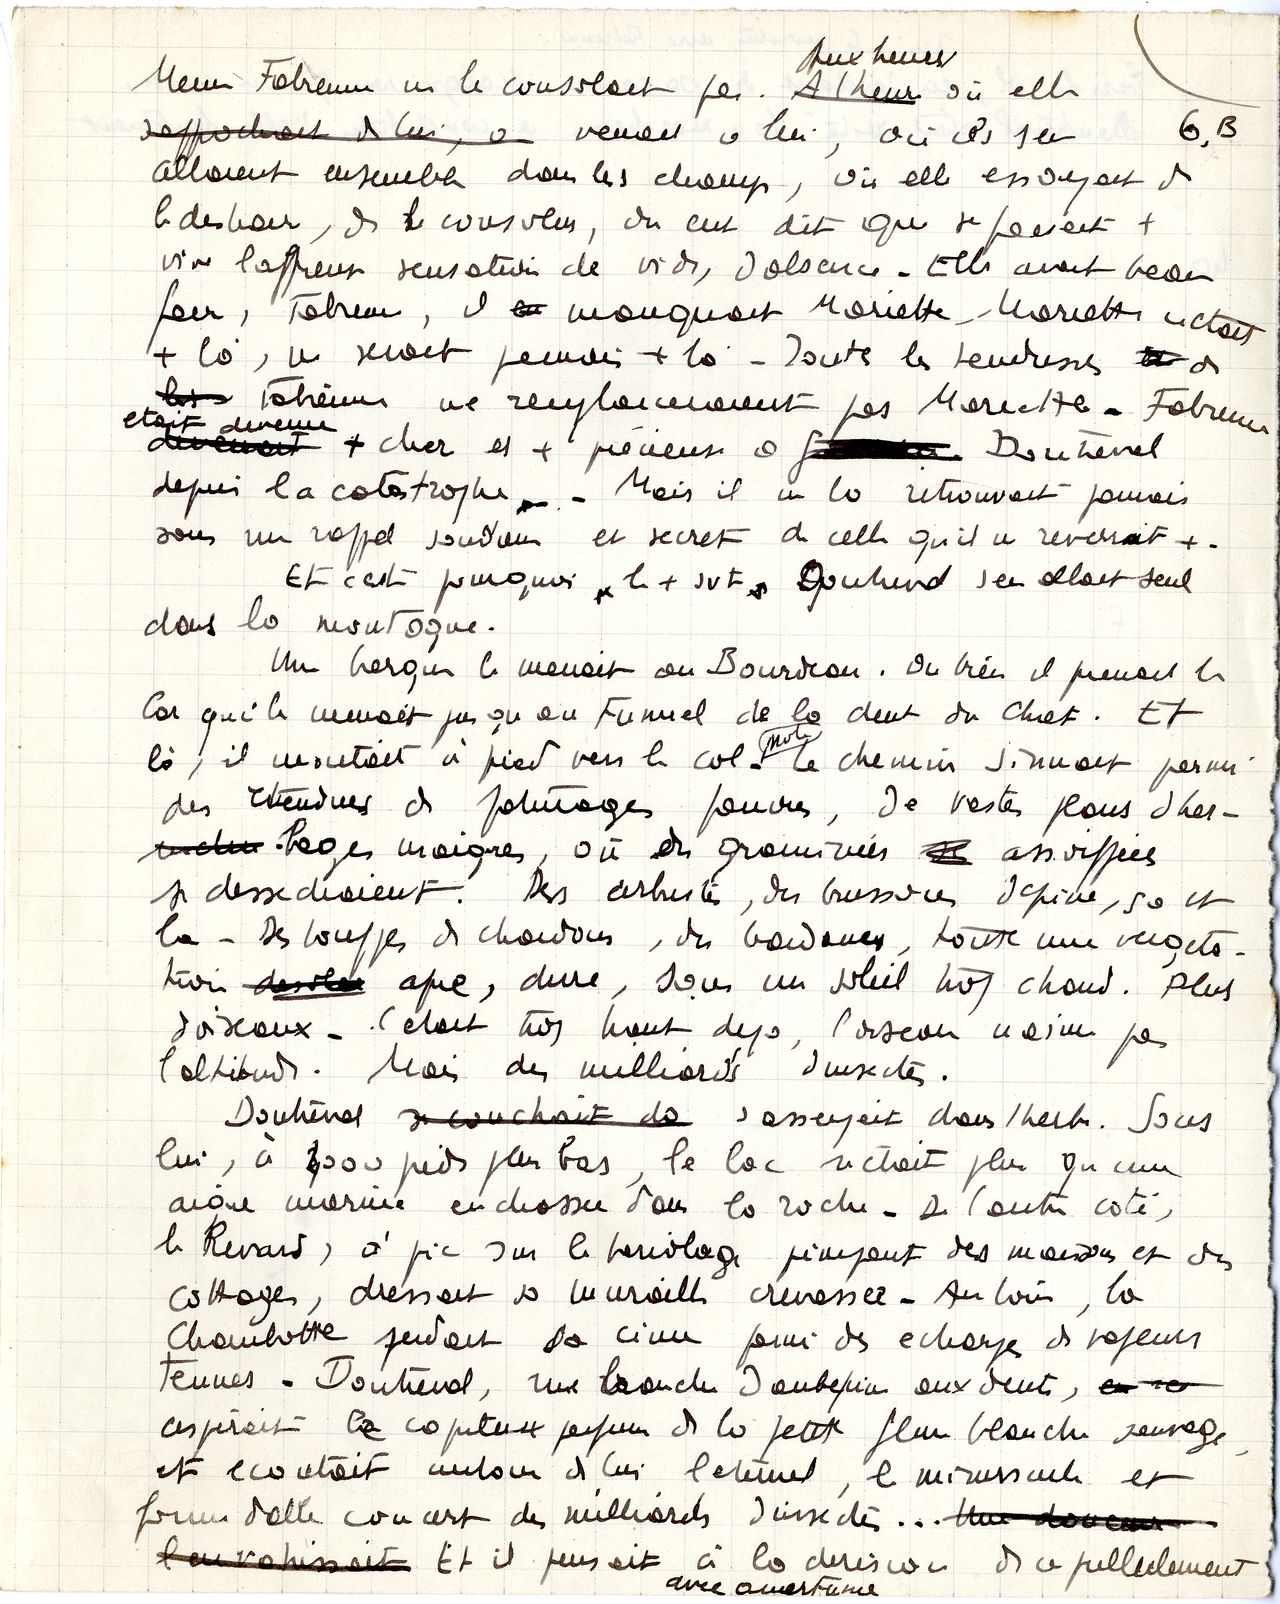 Aux heures
Meme Fabienne ne le consolait pas. A l'heure où elle
6.B
rapprochait de lui, venait a lui, où ils s'en
allaient ensemble dans les champs, où elle essayait de
le distraire, de le consoler, on eut dit que se faisait +
vive l'affreuse sensation de vide, d'absence - Elle avait beau
faire, Fabienne, il manquait Mariette - Mariette n'etait
+ là, ne serait jamais + là - Toutes les tendresses de
les Fabienne ne remplaceraient pas Mariette - Fabienne
etait devenue
devenait + cher et + précieuse a Doutreval
depuis la catastrophe - Mais il ne la retrouvait jamais
sans un rappel soudain et secret de celle qu'il ne reverrait +.
Et c'est pourquoi, le + svt, Doutreval s'en allait seul
dans la montagne.
Une barque le menait au Bourdeau. Ou bien il prenait le
Car qui le menait jusqu'au Tunnel de la dent du Chat. Et
là, il montait à pied vers le col. Le chemin sinuait parmi
des etendues de paturages pauvres, de vastes plans d'her-
bages maigres, où des graminées assoiffées
se dessechaient. Des arbustes, des buissons d'épine, ça et
la - Des touffes de chardons, des bardanes, toute une vegeta-
tion desolee apre, dure, sous un soleil trop chaud. Plus
d'oiseaux - C'etait trop haut deja, l'oiseau n'aime pas
l'altitude. Mais des milliards d'insectes.
Doutreval se couchait da s'asseyait dans l'herbe. Sous
lui, à 3000 pieds plus bas, le lac n'était plus qu'une
aigue marine enchassee dans la roche - De l'autre coté,
le Revard, à pic sur le bariolage pimpant des maisons et des
cottages, dressait sa muraille crevassée - Au loin, la
Chambotte perdait sa cime parmi des echarpes de vapeurs
tenues - Doutreval, une branche d'aubepine aux dents,
aspirait le capiteux parfum de la petite fleur blanche sauvage,
et ecoutait autour de lui l'eternel, le minuscule et
formidable concert des milliards d'insectes... Une douceur
l'envahissait Et il pensait à la derision de ce pullulement
avec amertume